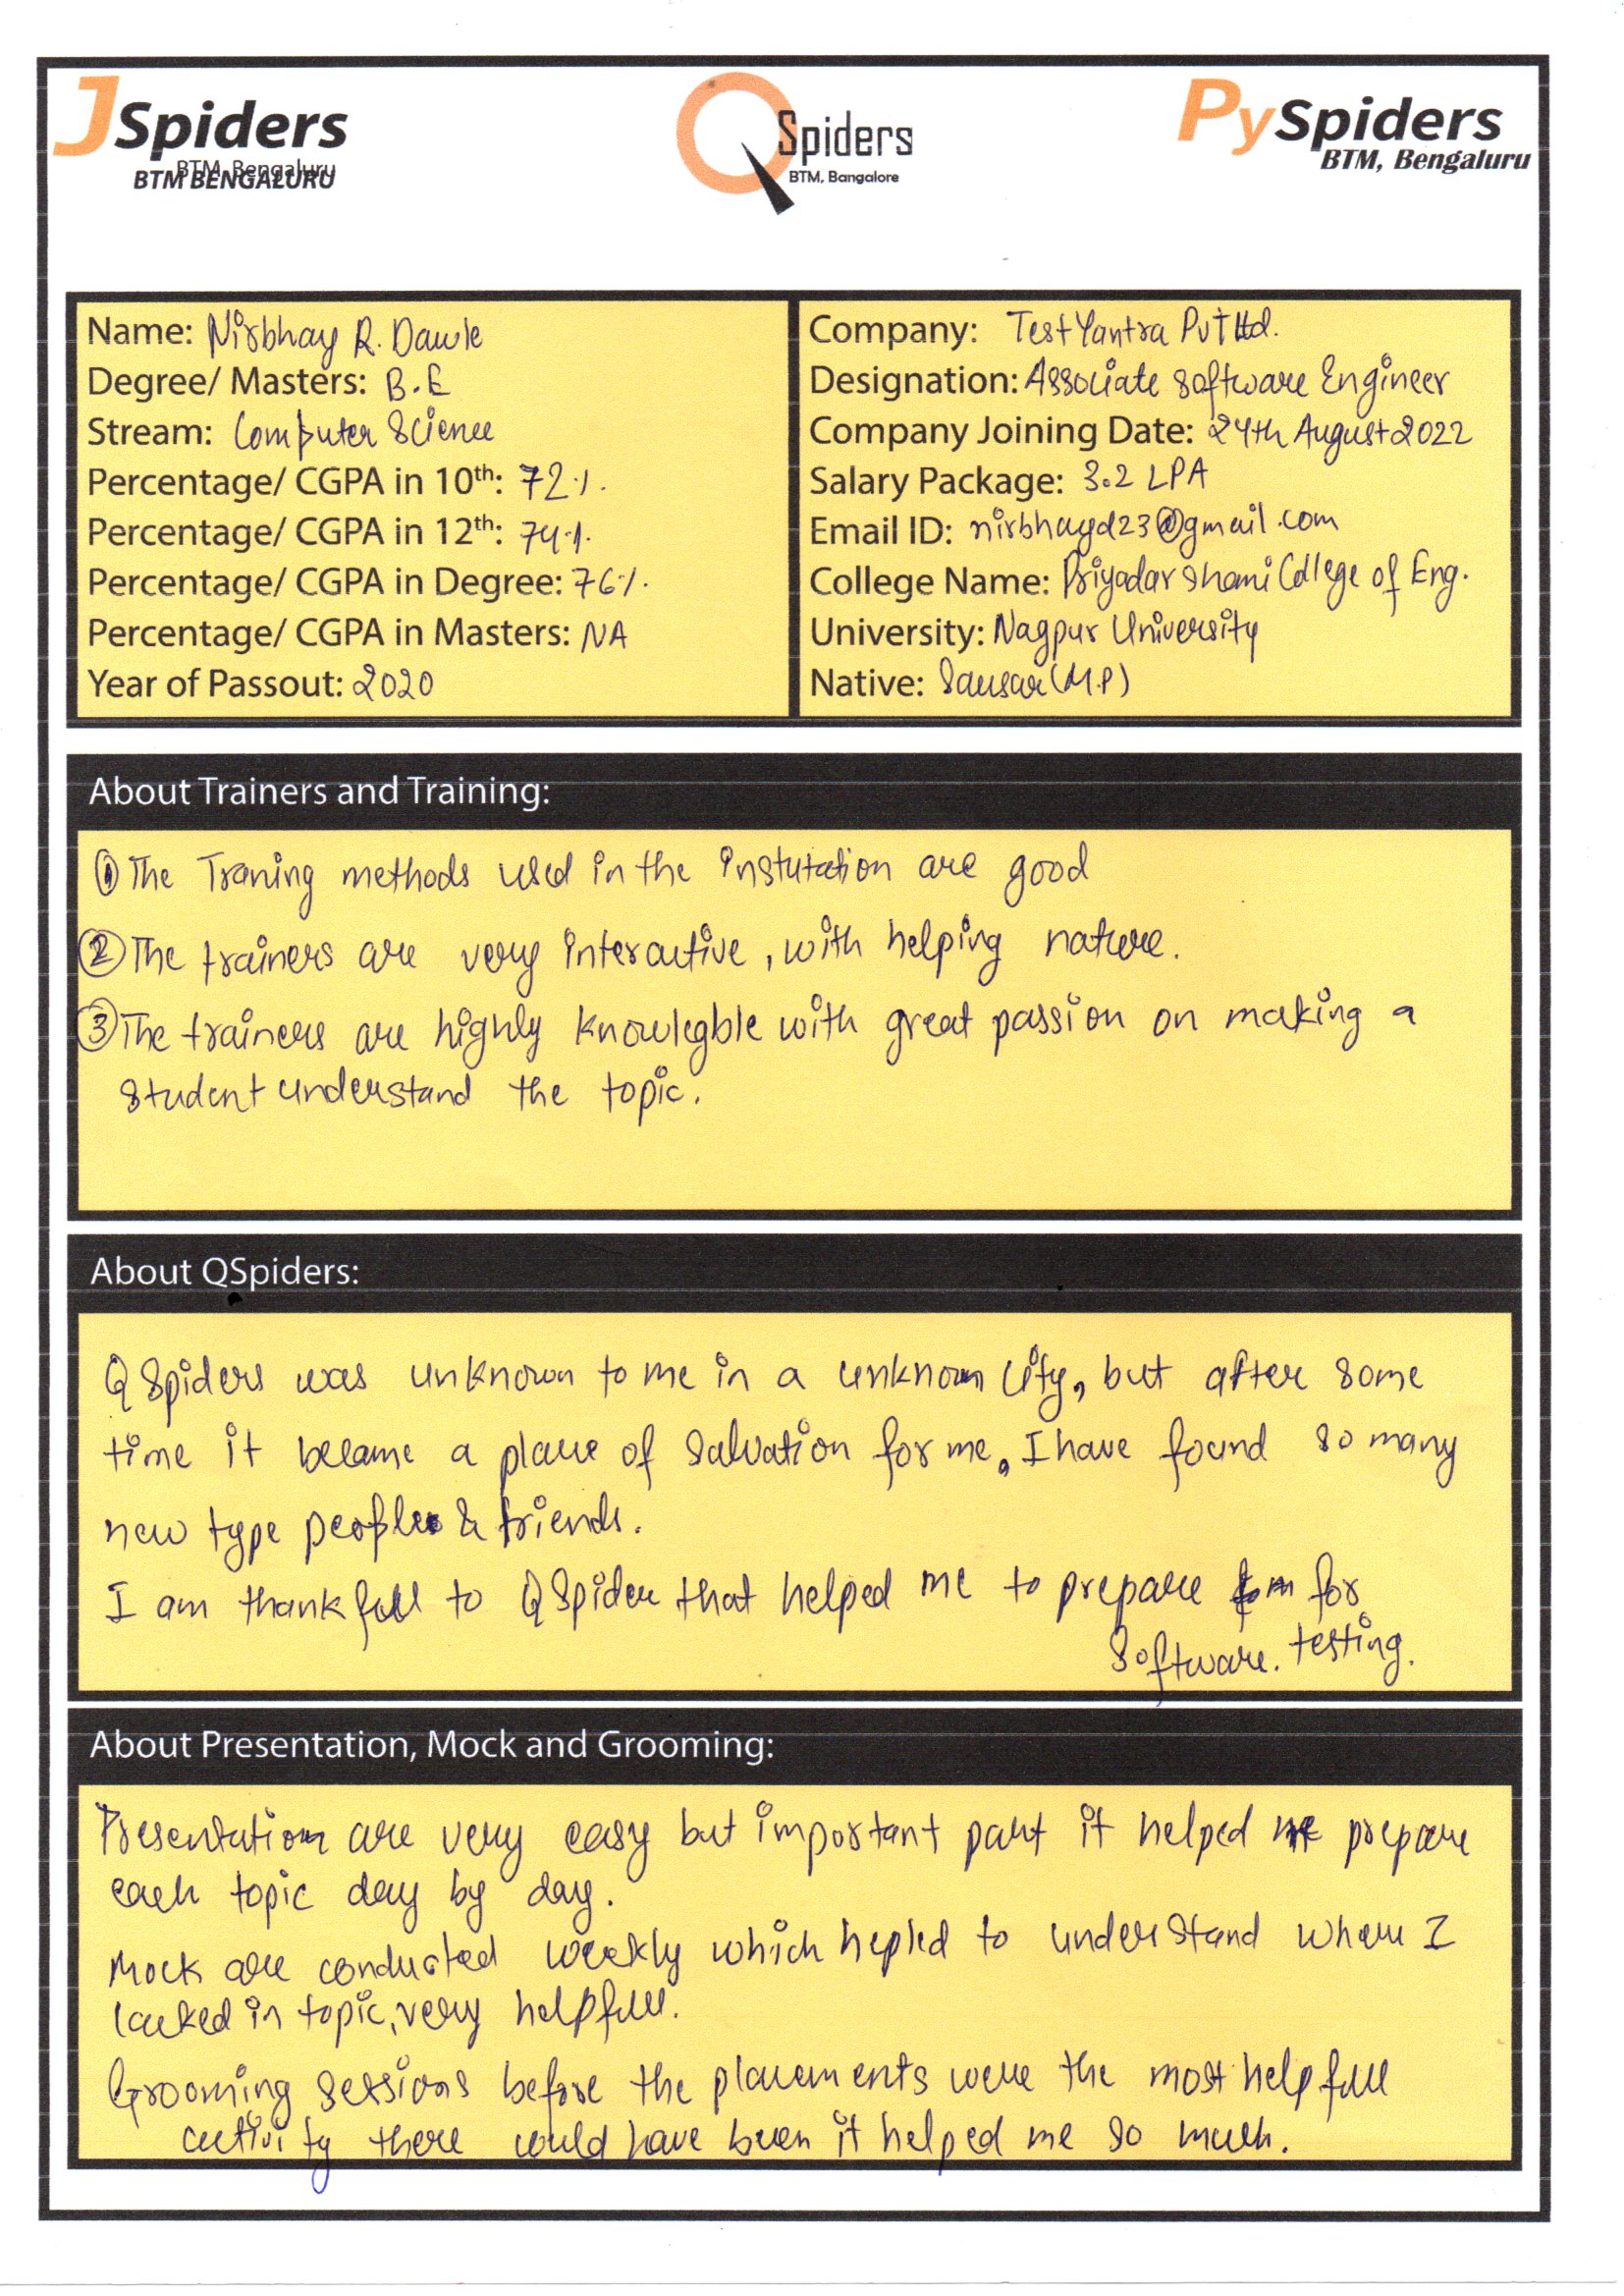 JSpiders
BTM, Bengaluru
BTM BENGALURU
QSpiders
BTM, Bangalore
PySpiders
BTM, Bengaluru
Name: Nirbhay R. Dawle
Degree/ Masters: B.E
Stream: Computer Science
Percentage/ CGPA in 10th: 72%.
Percentage/ CGPA in 12th: 74%.
Percentage/ CGPA in Degree: 76%.
Percentage/ CGPA in Masters: NA
Year of Passout: 2020
Company: TestYantra Pvt Ltd.
Designation: Associate Software Engineer
Company Joining Date: 24th August 2022
Salary Package: 3.2 LPA
Email ID: nirbhayd23@gmail.com
College Name: Priyadarshani College of Eng.
University: Nagpur University
Native: Sausar (M.P)
About Trainers and Training:
① The Traning methods used in the instutation are good
② The trainers are very interactive, with helping nature.
③ The trainers are highly knowlegble with great passion on making a
student understand the topic.
About QSpiders:
QSpiders was unknown to me in a unknown city, but after some
time it became a place of salvation for me, I have found so many
new type people & friends.
I am thankfull to QSpider that helped me to prepare for
software. testing.
About Presentation, Mock and Grooming:
Presentation are very easy but important part it helped me prepare
each topic day by day.
Mock are conducted weekly which hepled to understand where I
lacked in topic, very helpfull.
Grooming sessions before the placements were the most helpfull
activity there could have been it helped me so much.